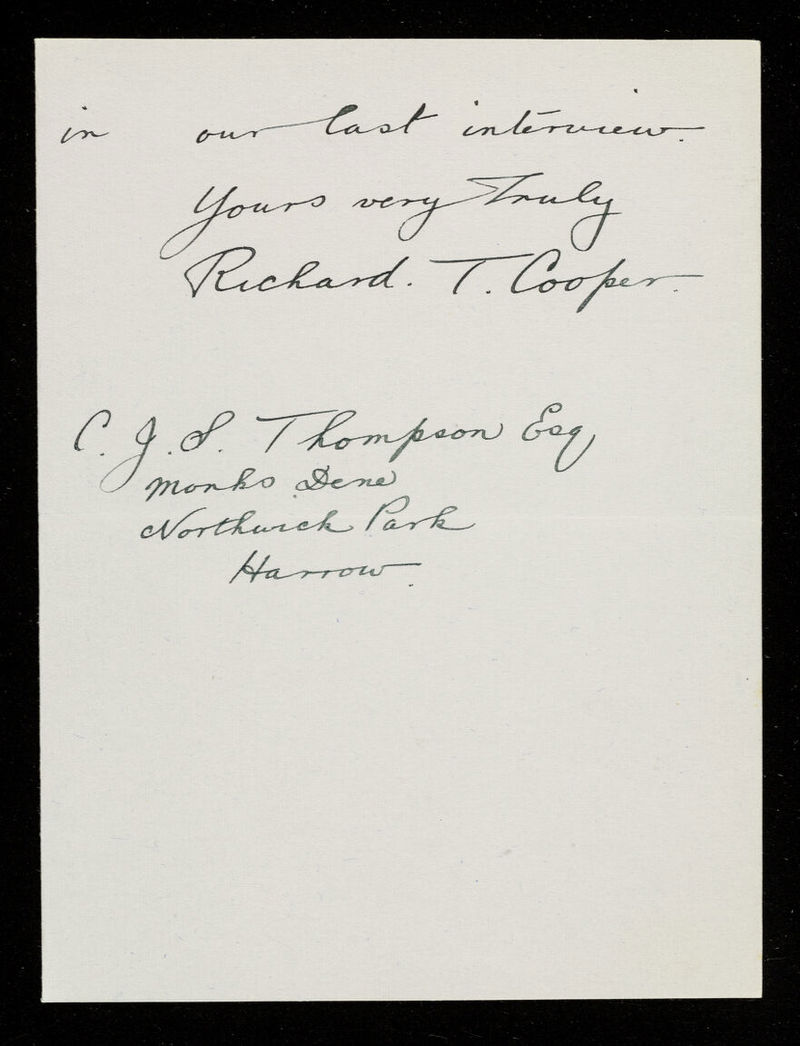 in our last interview.
Yours very Truly
Richard. T. Cooper.
C. J. S. Thompson Esq
Monks Dene
Northwick Park
Harrow.